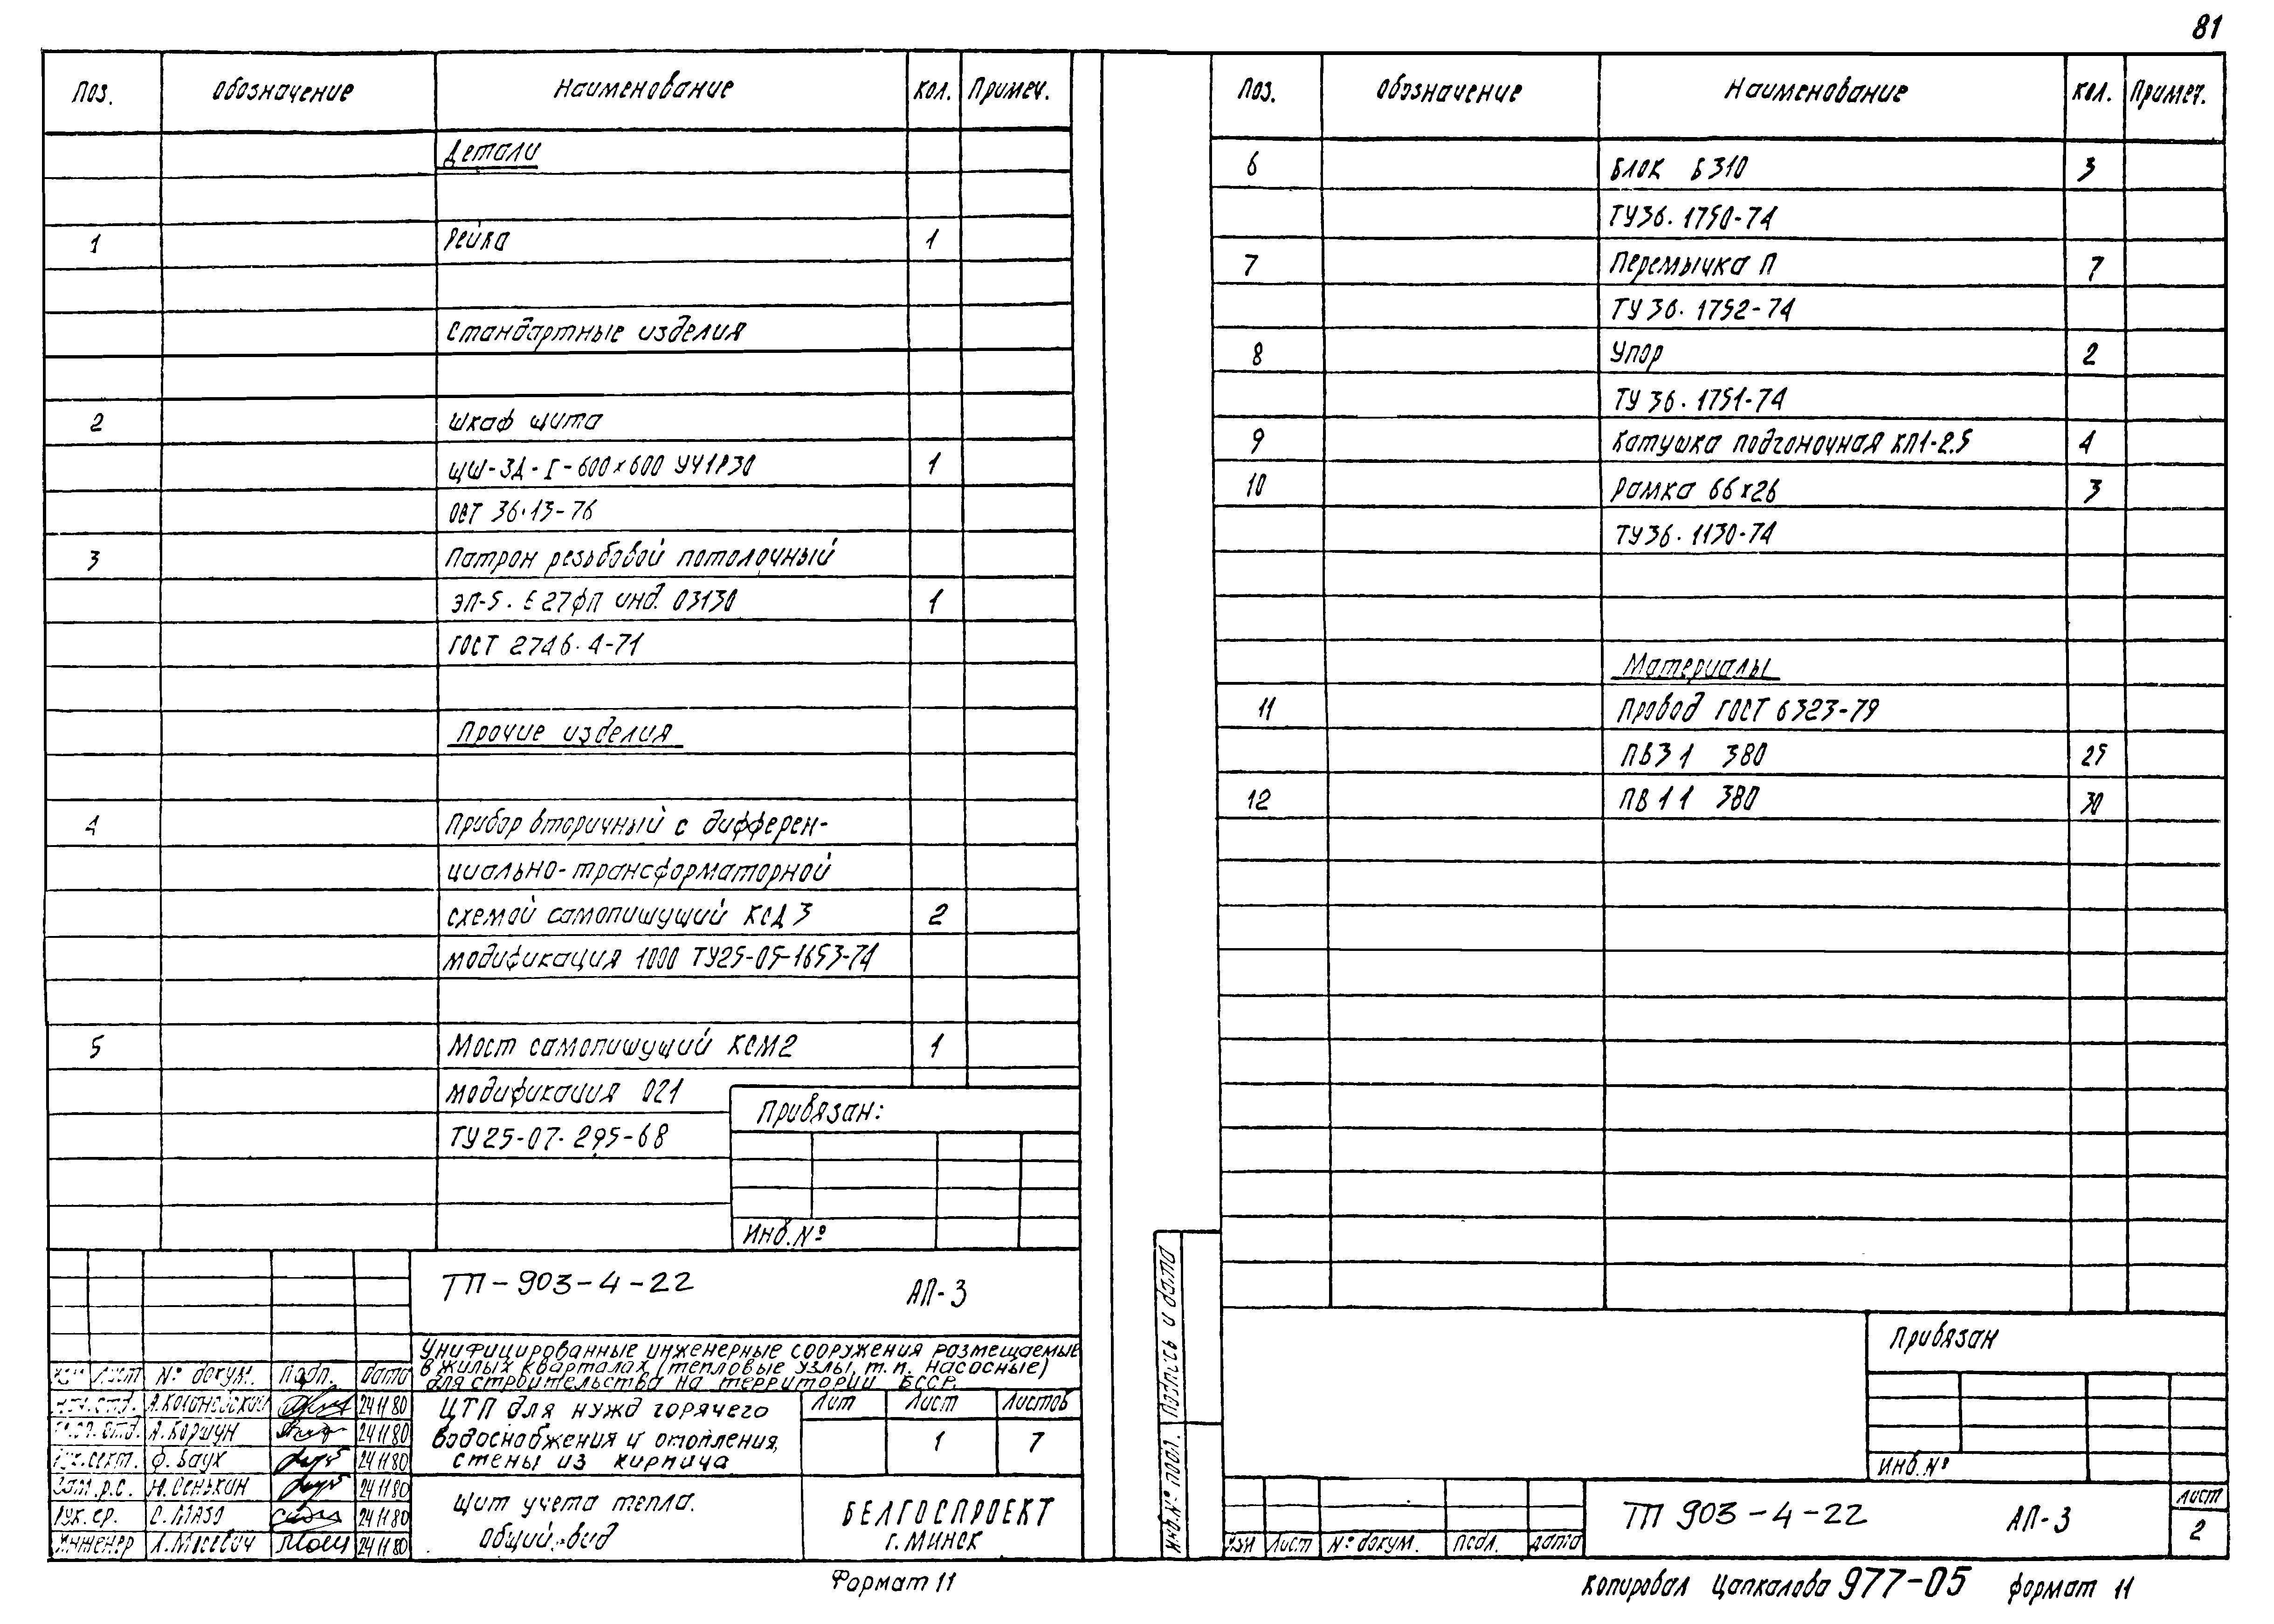 81
Поз. Обозначение Наименование Кол. Примеч.
Детали
1 Рейка 1
Стандартные изделия
2 Шкаф щита
ЩШ-ЗД-I-600х600 УЧ1Р30 1
ОСТ 36.13-76
3 Патрон резьбовой потолочный
ЭП-5. Е27ФП инд. 03130 1
ГОСТ 2746.4-71
Прочие изделия
4 Прибор вторичный с дифферен-
циально-трансформаторной
схемой самопишущий КСД 3 2
модификация 1000 ТУ25-05-1653-74
5 Мост самопишущий КСМ2 1
модификация 021
ТУ25-07.295-68
Привязан:
Инв.№
ТП-903-4-22 АП-3
Унифицированные инженерные сооружения размещаемые
в жилых кварталах (тепловые узлы, т.п. насосные)
для строительства на территории БССР.
Изм Лист № докум. Подп. Дата
24 11 80
А. Коршун 24 11 80
Рук.сект. Ф. Баух 24 11 80
Зам.р.с. 24 11 80
Рук. гр. С. Мазо 24 11 80
Инженер 24 11 80
ЦТП для нужд горячего
водоснабжения и отопления,
стены из кирпича
Лит Лист Листов
1 7
Щит учета тепла.
Общий вид
БЕЛГОСПРОЕКТ
г. Минск
Формат 11
Поз. Обозначение Наименование Кол. Примеч.
6 Блок Б310 3
ТУ36.1750-74
7 Перемычка П 7
ТУ 36.1752-74
8 Упор 2
ТУ 36.1751-74
9 Катушка подгоночная КП1-2.5 4
10 Рамка 66х26 3
ТУ36.1130-74
Материалы
11 Провод ГОСТ 6323-79
ПВ3 1 380 25
12 ПВ 1 1 380 30
Инв.№ подл. Подпись и дата
Привязан
Инв.№
Изм Лист № докум. Подп. Дата
ТП 903-4-22 АП-3
Лист
2
Копировал Цапкалова 977-05 формат 11